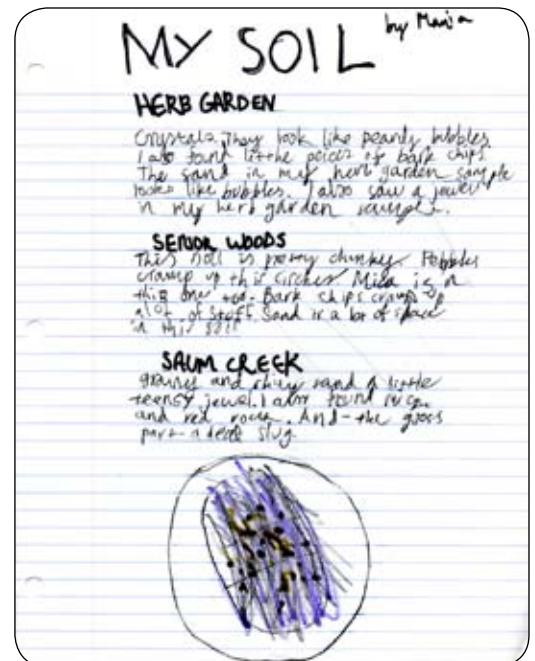 by Maria
MY SOIL
HERB GARDEN
Crystals. They look like pearly bubbles
I also found little peices of bark chips
The sand in my herb garden sample
looks like bubbles. I also saw a jewel
in my herb garden sample.
SENIOR WOODS
This soil is pretty chunky. Pebbles
cramp up this circles. Mica is in
this one too. Bark chips cramp up
alot of stuff. Sand is a lot of space
in this soil
SAUM CREEK
and shiny sand a little
teensy jewel. I also found mica
and red rocks. And-the gross
part-a dead slug